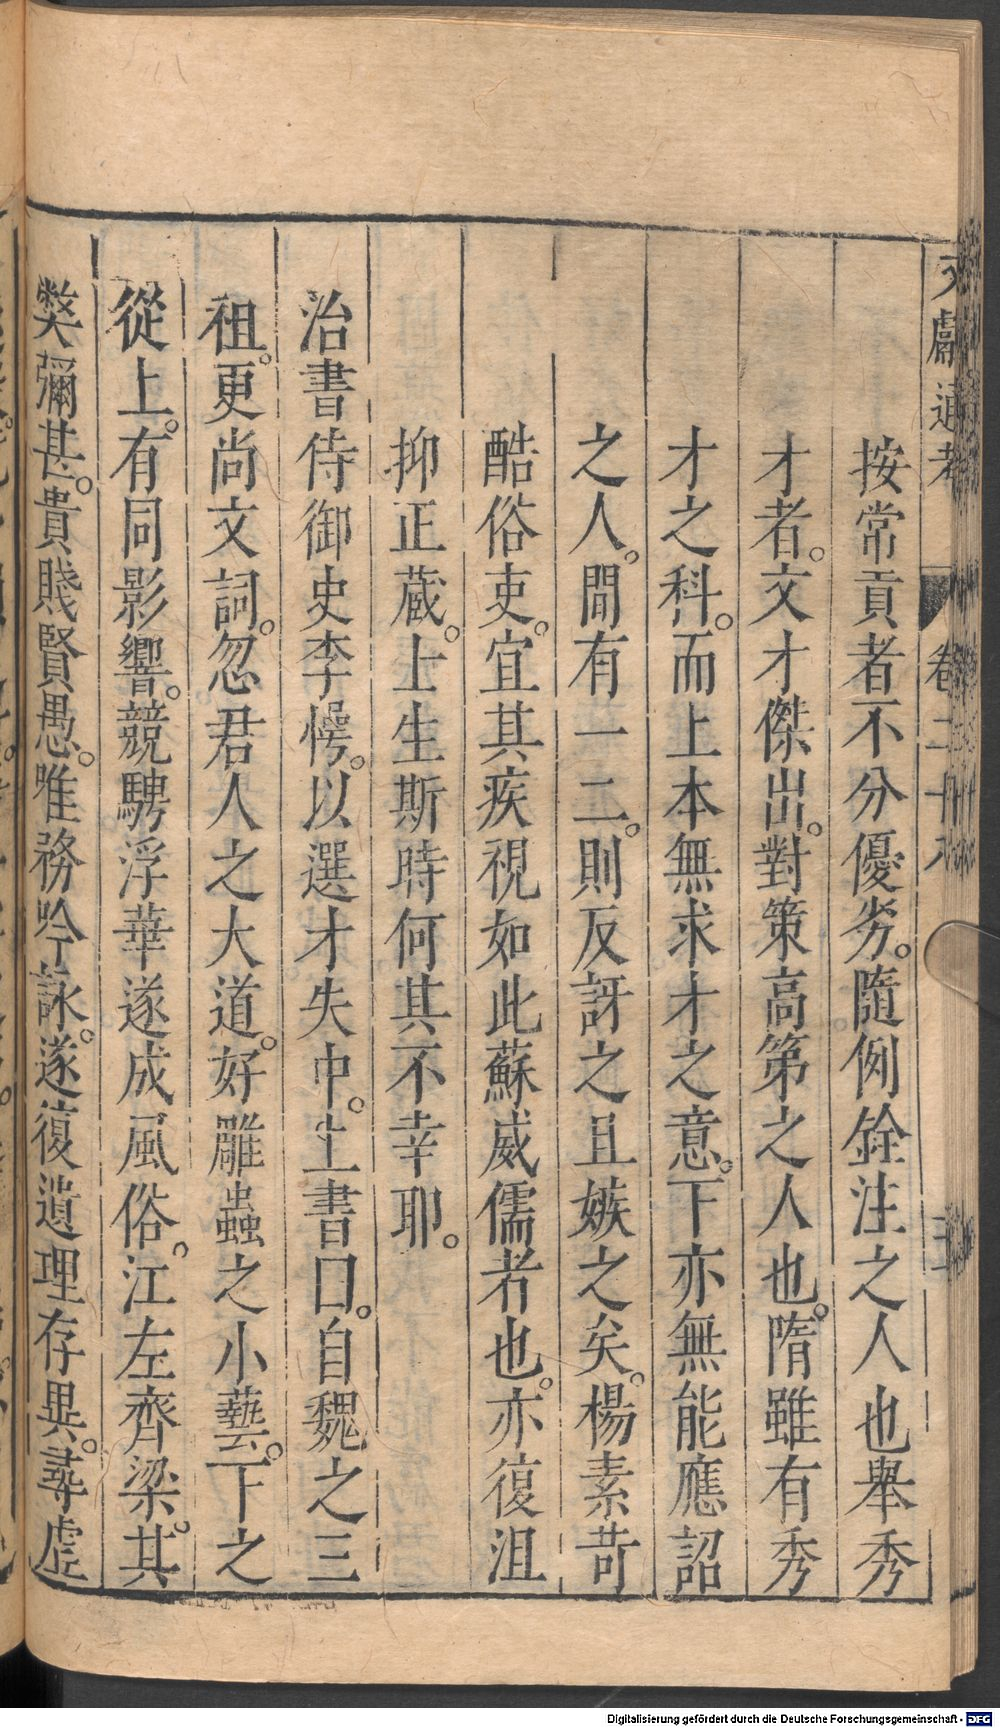 文獻通考 卷二十八 三
按常貢者不分優劣。隨例銓注之人也舉秀
才者。文才傑出。對策高第之人也。隋雖有秀
才之科。而上本無求才之意。下亦無能應詔
之人。間有一二。則反訝之且嫉之矣。楊素苛
酷俗吏。宜其疾視如此蘇威儒者也。亦復沮
抑正藏。士生斯時何其不幸耶。
治書侍御史李愕。以選才失中。上書曰。自魏之三
祖。更尚文詞。忽君人之大道。好雕蟲之小藝。下之
從上。有同影響。競騁浮華遂成風俗。江左齊梁。其
弊彌甚。貴賤賢愚。唯務吟詠。遂復遺理存異。尋虛
Digitalisierung gefördert durch die Deutsche Forschungsgemeinschaft - DFG